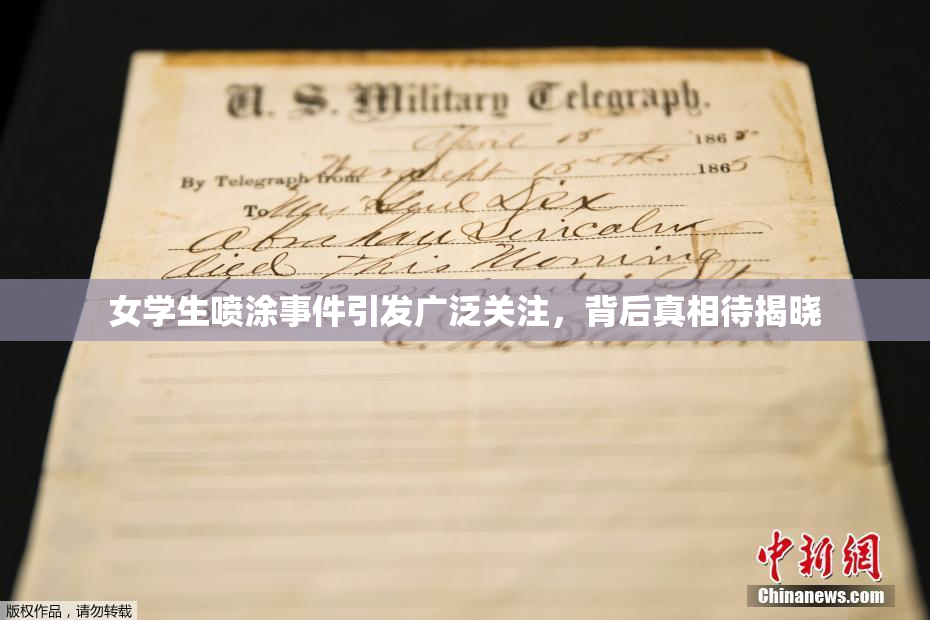 U. S. Military Telegraph.
April 15 1865
By Telegraph from War Dept 15th 1865
To Maj Genl Dix
Abraham Lincoln
died This Morning
at 22 minutes after
女学生喷涂事件引发广泛关注，背后真相待揭晓
E. M. Stanton
中新网
Chinanews.com
版权作品，请勿转载